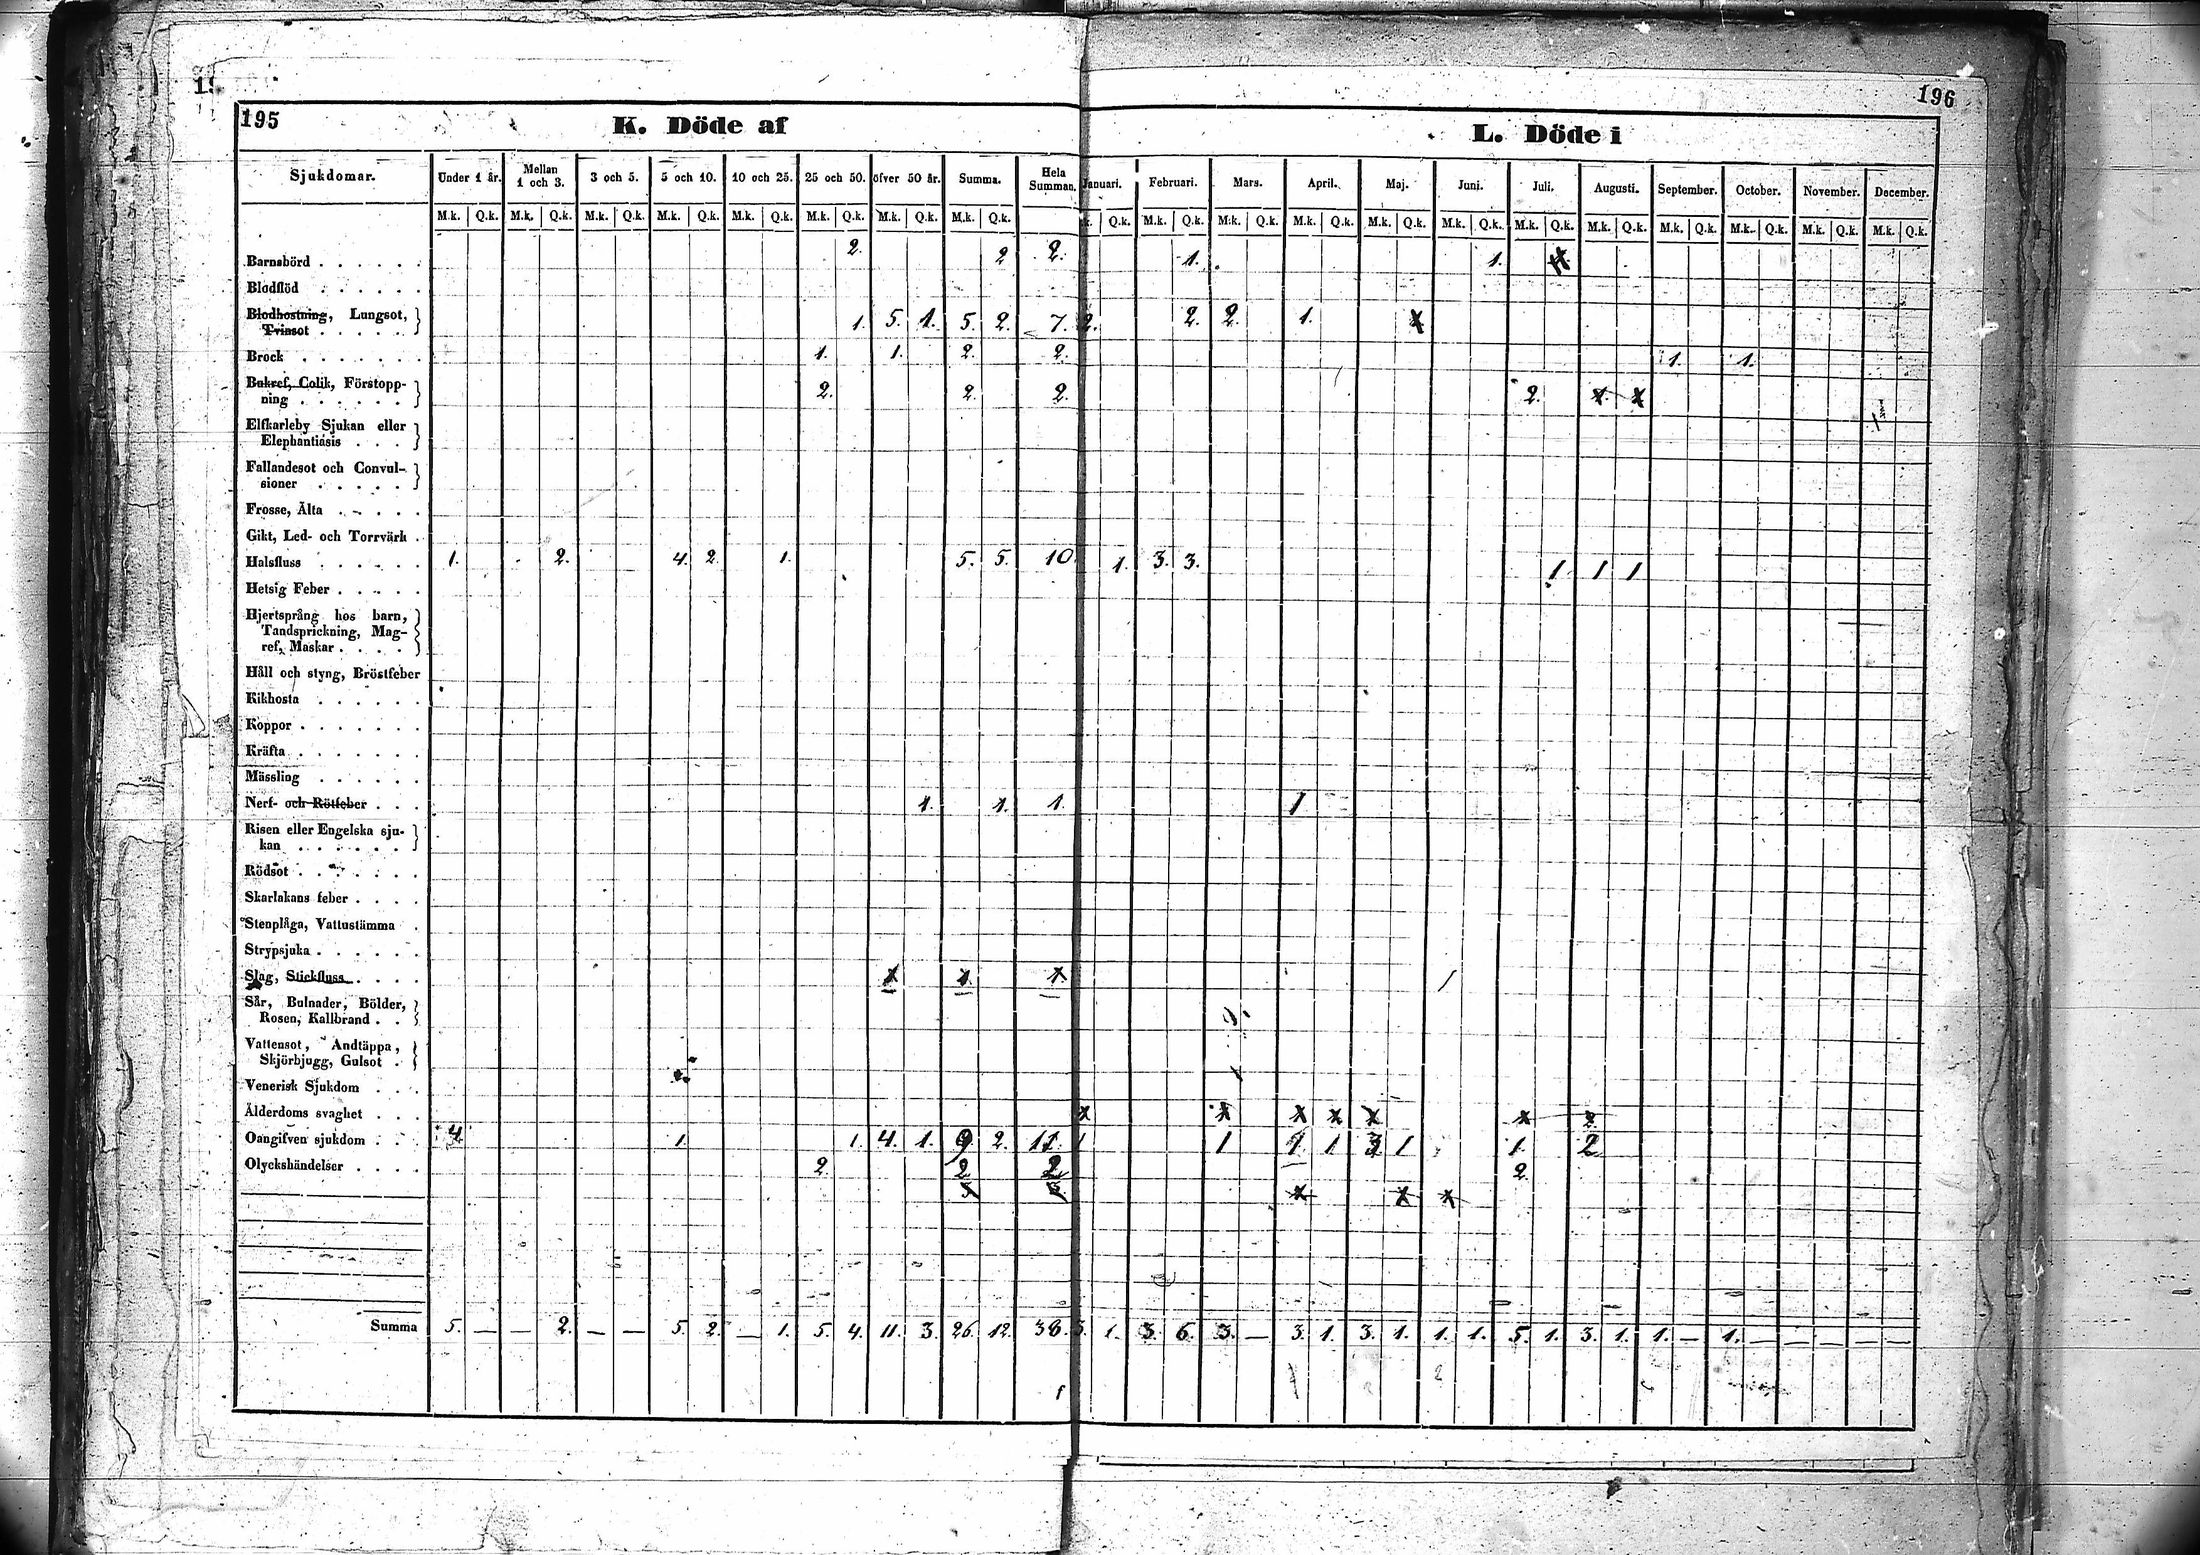 195
K. Döde af
Sjukdomar. Under 1 år. Mellan 1 och 3. 3 och 5. 5 och 10. 10 och 25. 25 och 50. öfver 50 år. Summa. Hela Summan.
M.k. Q.k. M.k. Q.k. M.k. Q.k. M.k. Q.k. M.k. Q.k. M.k. Q.k. M.k. Q.k. M.k. Q.k.
Barnsbörd 2. 2 2.
Blodflöd
Blodhostning, Lungsot, Tvinsot 1. 5. 1. 5. 2. 7.
Brock 1. 1. 2. 2.
Bukref, Colik, Förstoppning 2. 2. 2.
Elfkarleby Sjukan eller Elephantiasis
Fallandesot och Convulsioner
Frosse, Älta
Gikt, Led- och Torrvärk
Halsfluss 1. 2. 4. 2. 1. 5. 5. 10.
Hetsig Feber
Hjertsprång hos barn, Tandsprickning, Magref, Maskar
Håll och styng, Bröstfeber
Kikhosta
Koppor
Kräfta
Mässling
Nerf- och Rötfeber 1. 1. 1.
Risen eller Engelska sjukan
Rödsot
Skarlakans feber
Stenplåga, Vattustämma
Strypsjuka
Slag, Stickfluss
Sår, Bulnader, Bölder, Rosen, Kallbrand
Vattensot, Andtäppa, Skjörbjugg, Gulsot
Venerisk Sjukdom
Ålderdoms svaghet
Oangifven sjukdom 4. 1. 1. 4. 1. 9 2. 11.
Olyckshändelser 2. 2 2
Summa 5. — — 2. — — 5. 2. — 1. 5. 4. 11. 3. 26. 12. 38.
196
L. Döde i
Januari. Februari. Mars. April. Maj. Juni. Juli. Augusti. September. October. November. December.
Q.k. M.k. Q.k. M.k. Q.k. M.k. Q.k. M.k. Q.k. M.k. Q.k. M.k. Q.k. M.k. Q.k. M.k. Q.k. M.k. Q.k. M.k. Q.k. M.k. Q.k.
1. 1.
2. 2. 2. 1.
1. 1.
2.
1. 3. 3. 1 1 1
1
1 1 1. 1 3 1 1. 2
2.
3. 1. 3. 6. 3. — 3. 1. 3. 1. 1. 1. 5. 1. 3. 1. 1. — 1. — — — — —